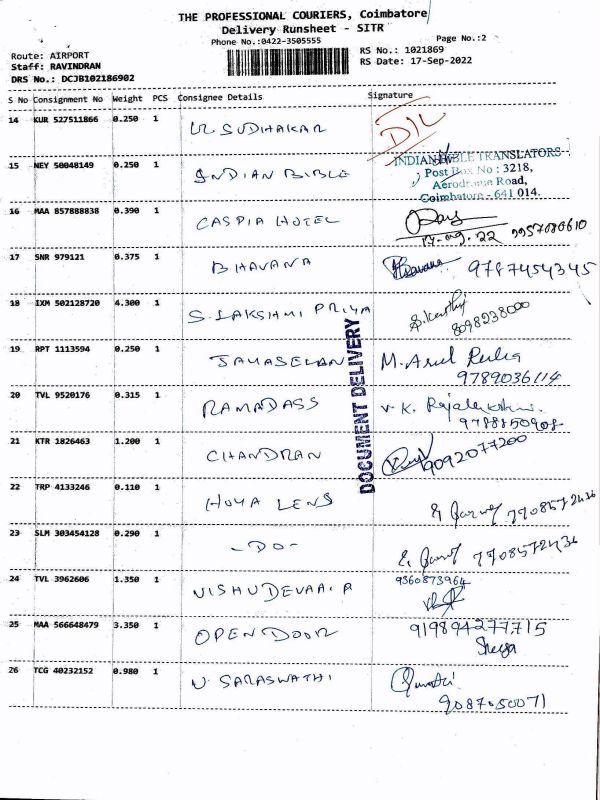 THE PROFESSIONAL COURIERS, Coimbatore
Delivery Runsheet - SITR
Phone No.:0422-3505555
Page No.:2
Route: AIRPORT
RS No.: 1021869
Staff: RAVINDRAN
RS Date: 17-Sep-2022
DRS No.: DCJB102186902
S No Consignment No Weight PCS Consignee Details Signature
14 KUR 527511866 0.250 1 SUDHAKAR D/L
15 NEY 50048149 0.250 1 INDIAN BIBLE
INDIAN BIBLE TRANSLATORS
Post Box No : 3218,
Aerodrome Road,
Coimbatore - 641 014.
16 MAA 857888838 0.390 1 CASPIA HOTEL
17-09-22 9957080610
17 SNR 979121 0.375 1 BHAVANA Bhavana 9787454345
18 IXM 502128720 4.300 1 S. LAKSHMI PRIYA
8098238000
19 RPT 1113594 0.250 1 JAYASEELAN M. Arul
9789036114
DOCUMENT DELIVERY
20 TVL 9520176 0.315 1 RAMADASS V. K. Rajalakshmi
9788850908
21 KTR 1826463 1.200 1 CHANDRAN 9092077200
22 TRP 4133246 0.110 1 HOYA LENS 7908572436
23 SLM 303454128 0.290 1 - DO - 7908572436
24 TVL 3962606 1.350 1 9360873964
25 MAA 566648479 3.350 1 OPEN DOOR 919894277715
Sheya
26 TCG 40232152 0.980 1 V. SARASWATHI
9087050071